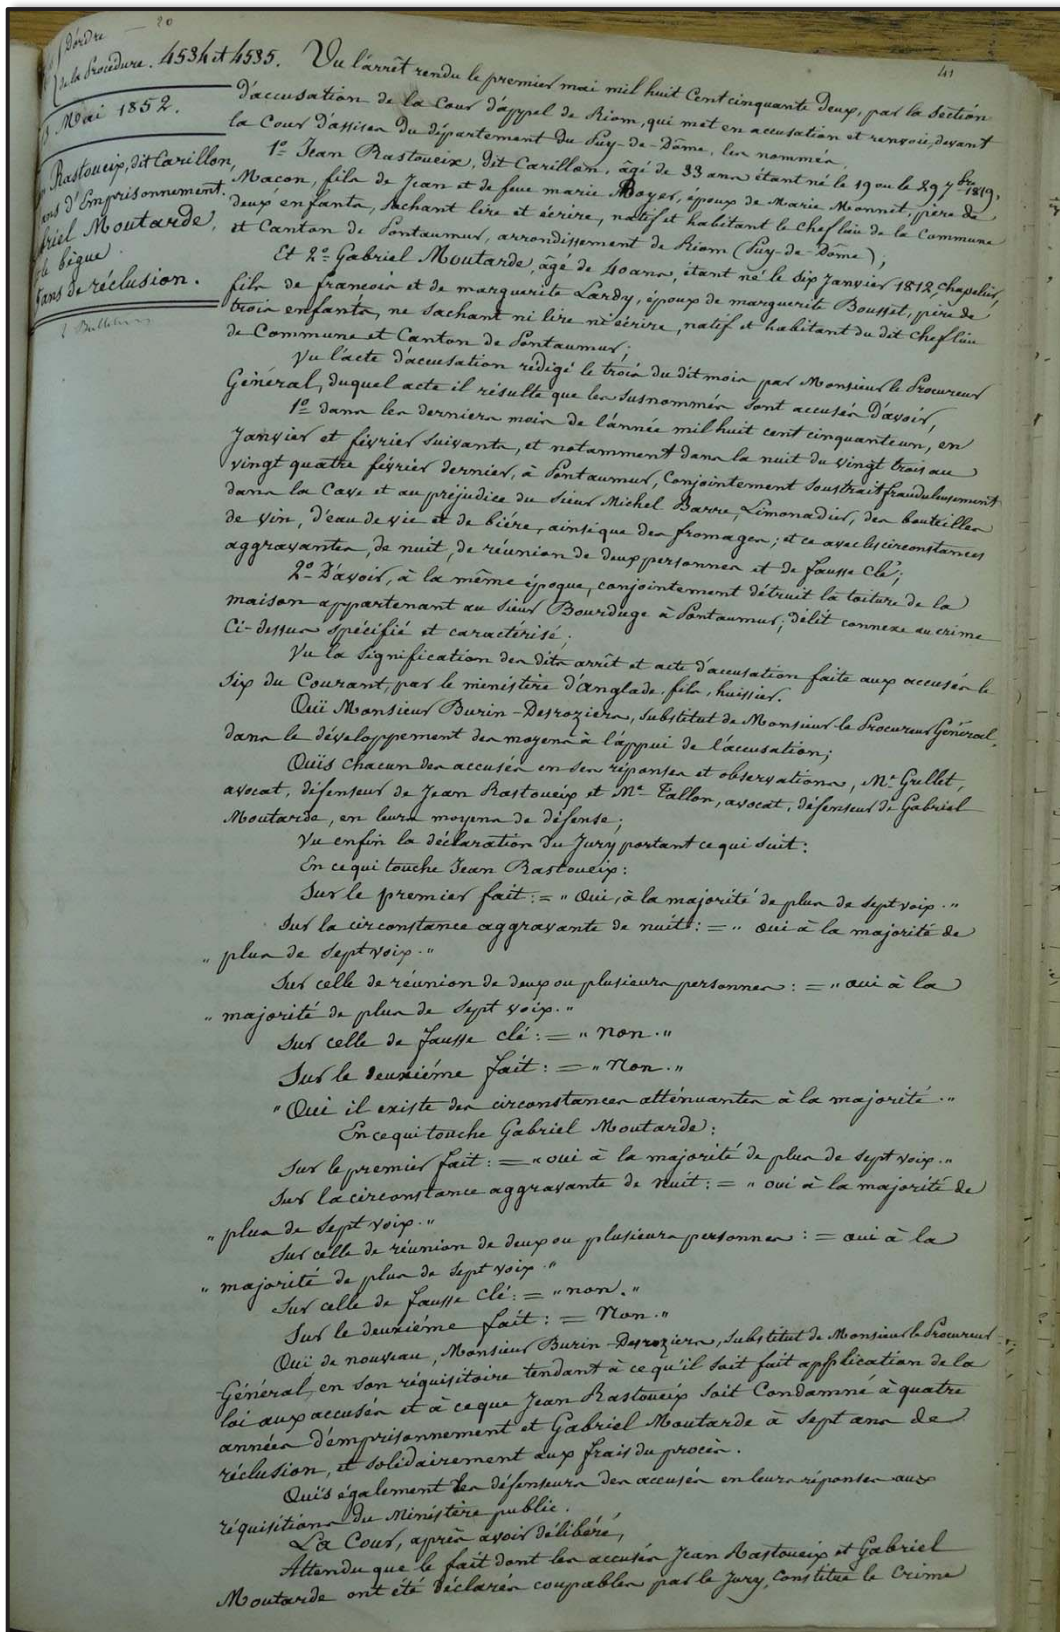 20
41
d'ordre
de la Procédure. 4534 et 4535.
Mai 1852.
Rastoueix, dit Carillon,
ans d'Emprisonnement.
briel Moutarde,
le bègue
ans de réclusion.
Vu l'arrêt rendu le premier mai mil huit Cent cinquante deux, par la Section
d'accusation de la Cour d'appel de Riom, qui met en accusation et renvoie devant
la Cour d'assises du département du Puy-de-Dôme, les nommés
1º Jean Rastoueix, dit Carillon, âgé de 33 ans étant né le 19 ou le 29 7bre 1819,
Macon, fils de Jean et de feue marie Boyer, époux de Marie Monnet, père de
deux enfants, sachant lire et écrire, natif et habitant le Chef lieu de la Commune
et Canton de Pontaumur, arrondissement de Riom (Puy-de-Dôme);
Et 2º Gabriel Moutarde, âgé de 40 ans, étant né le dix Janvier 1812, chapelier,
fils de francois et de marguerite Lardy, époux de marguerite Bousset, père de
trois enfants, ne sachant ni lire ni écrire, natif et habitant du dit Chef lieu
de Commune et Canton de Pontaumur;
Vu l'acte d'accusation rédigé le trois du dit mois par Monsieur le Procureur
Général, duquel acte il résulte que les susnommés sont accusés d'avoir,
1º dans les derniers mois de l'année mil huit cent cinquante un, en
Janvier et février suivants, et notamment dans la nuit du vingt trois au
vingt quatre février dernier, à Pontaumur, conjointement soustrait frauduleusement
dans la Cave et au préjudice du Sieur Michel Barre, Limonadier, des bouteilles
de vin, d'eau de vie et de bière, ainsi que des fromages; et ce avec les circonstances
aggravantes, de nuit, de réunion de deux personnes et de fausse Clé;
2º D'avoir, à la même époque, conjointement détruit la toiture de la
maison appartenant au Sieur Bourduge à Pontaumur; délit connexe au crime
Ci-dessus spécifié et caractérisé;
Vu la Signification des dits arrêt et acte d'accusation faite aux accusés le
Six du Courant, par le ministère d'anglade, fils, huissier.
Ouï Monsieur Burin-Desroziers, Substitut de Monsieur le Procureur Général,
dans le développement des moyens à l'appui de l'accusation;
Ouïs chacun des accusés en ses réponses et observations, Me Grellet,
avocat, défenseur de Jean Rastoueix et Me Tallon, avocat, défenseur de Gabriel
Moutarde, en leurs moyens de défense;
Vu enfin la déclaration du Jury portant ce qui suit:
En ce qui touche Jean Rastoueix:
Sur le premier fait: = "Oui, à la majorité de plus de sept voix."
Sur la circonstance aggravante de nuit: = "oui à la majorité de
"plus de sept voix."
Sur celle de réunion de deux ou plusieurs personnes: = "oui à la
"majorité de plus de sept voix."
Sur celle de fausse clé: = "non."
Sur le deuxiéme fait: = "Non."
"Oui il existe des circonstances atténuantes à la majorité."
En ce qui touche Gabriel Moutarde:
Sur le premier fait: = "oui à la majorité de plus de sept voix."
Sur la circonstance aggravante de nuit: = "oui à la majorité de
"plus de sept voix."
Sur celle de réunion de deux ou plusieurs personnes: = oui à la
"majorité de plus de sept voix."
Sur celle de fausse Clé: = "non."
Sur le deuxiéme fait: = Non."
Ouï de nouveau, Monsieur Burin-Desroziers, Substitut de Monsieur le Procureur
Général, en son réquisitoire tendant à ce qu'il soit fait application de la
loi aux accusés et à ce que Jean Rastoueix soit Condamné à quatre
années d'emprisonnement et Gabriel Moutarde à sept ans de
réclusion, et solidairement aux frais du procès.
Ouïs également les défenseurs des accusés en leurs réponses aux
réquisitions du Ministère public.
La Cour, après avoir délibéré,
Attendu que le fait dont les accusés Jean Rastoueix et Gabriel
Moutarde ont été déclarés coupables par le Jury, constitue le Crime